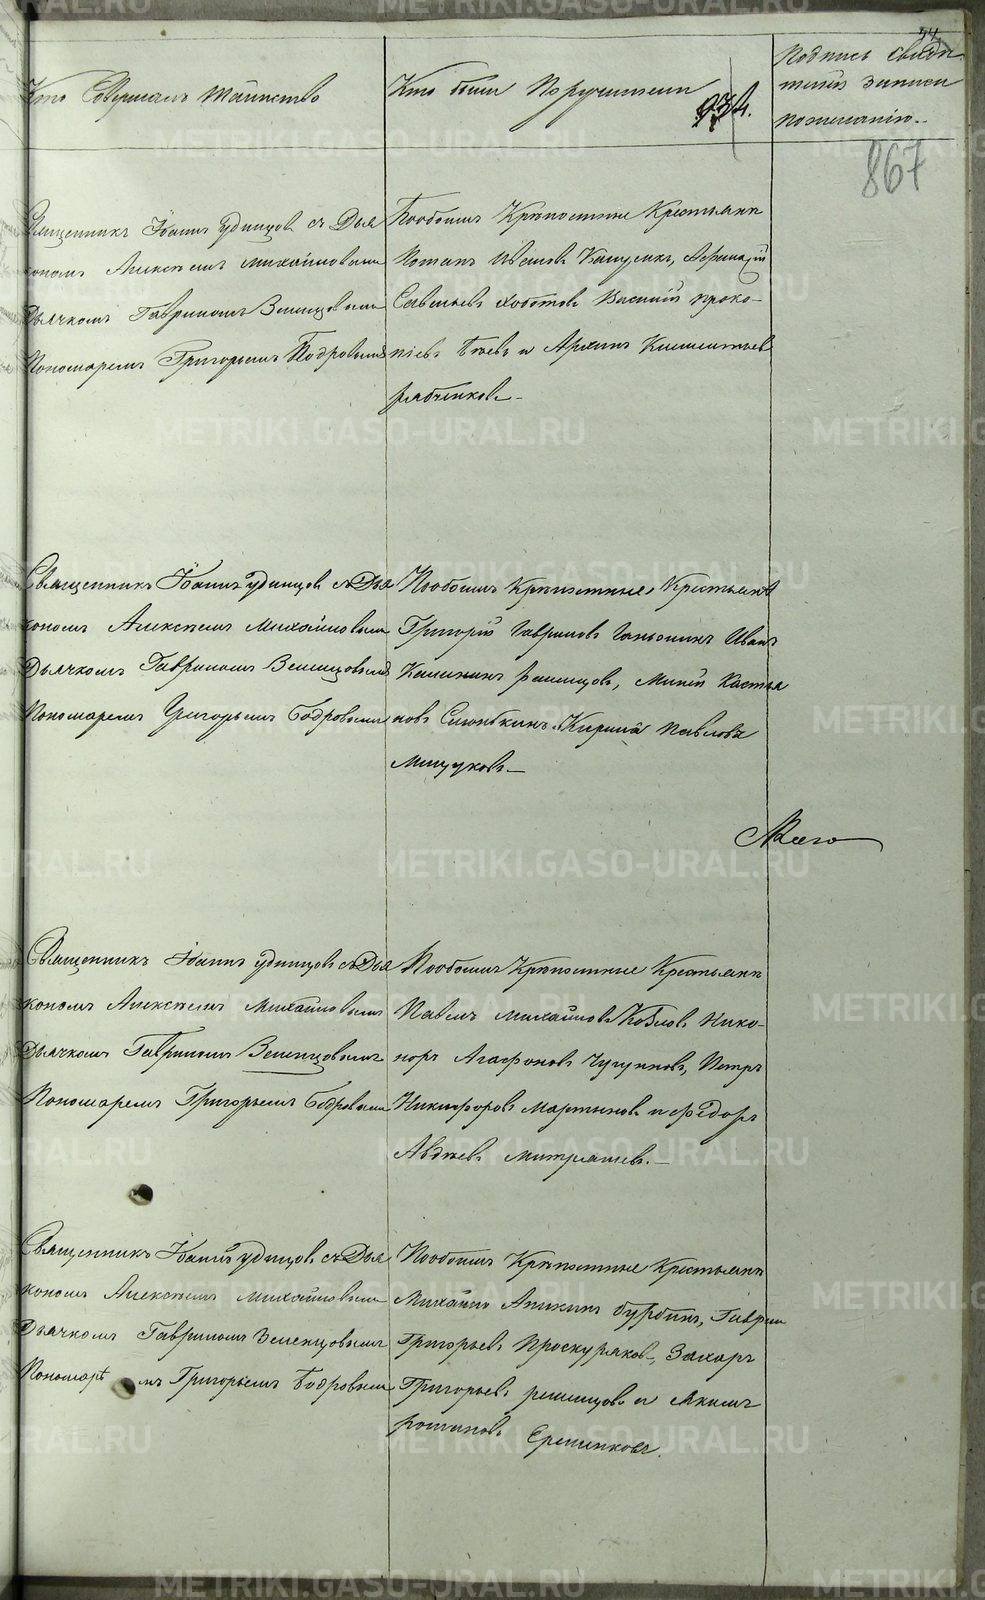 44
Кто Совершалъ таинство
Кто были Поручители
934.
Подпись свиде-
телей записи
по желанію.
867
Священникъ Іоаннъ Удинцовъ съ Дья
кономъ Алексѣемъ Михайловымъ
Дьячкомъ Гавриломъ Зеленцовымъ
Пономаремъ Григорьемъ Бодровымъ
Пообоимъ Крѣпостные Крестьяне
Потапъ Ивановъ Афанасій
Савельевъ Хоботовъ Василій Проко-
піевъ и Архипъ
Рябченковъ
Священникъ Іоаннъ Удинцовъ съ Дья
кономъ Алексѣемъ Михайловымъ
Дьячкомъ Гавриломъ Зеленцовымъ
Пономаремъ Григорьемъ Бодровымъ
Пообоимъ Крѣпостные Крестьяне
Григорій Гавриловъ Иванъ
Калининъ Миней Касья
новъ Кирила Павловъ
Мишуковъ
Священникъ Іоаннъ Удинцовъ съ Дья
кономъ Алексѣемъ Михайловымъ
Дьячкомъ Гавриломъ Зеленцовымъ
Пономаремъ Григорьемъ Бодровымъ
Пообоимъ Крѣпостные Крестьяне
Павелъ Михайловъ Козловъ Нико-
норъ Агафоновъ Чугуновъ, Петръ
Никифоровъ Мартыновъ и Федоръ
Авдѣевъ Митряшевъ.
Священникъ Іоаннъ Удинцовъ съ Дья
кономъ Алексѣемъ Михайловымъ
Дьячкомъ Гавриломъ Зеленцовымъ
Пономаремъ Григорьемъ Бодровымъ
Пообоимъ Крѣпостные Крестьяне
Михайло Аникинъ Бурбинъ, Гаврил
Григорьевъ Проскуряковъ, Захаръ
Григорьевъ и Акимъ
Романовъ Еременковъ.
METRIKI.GASO-URAL.RU